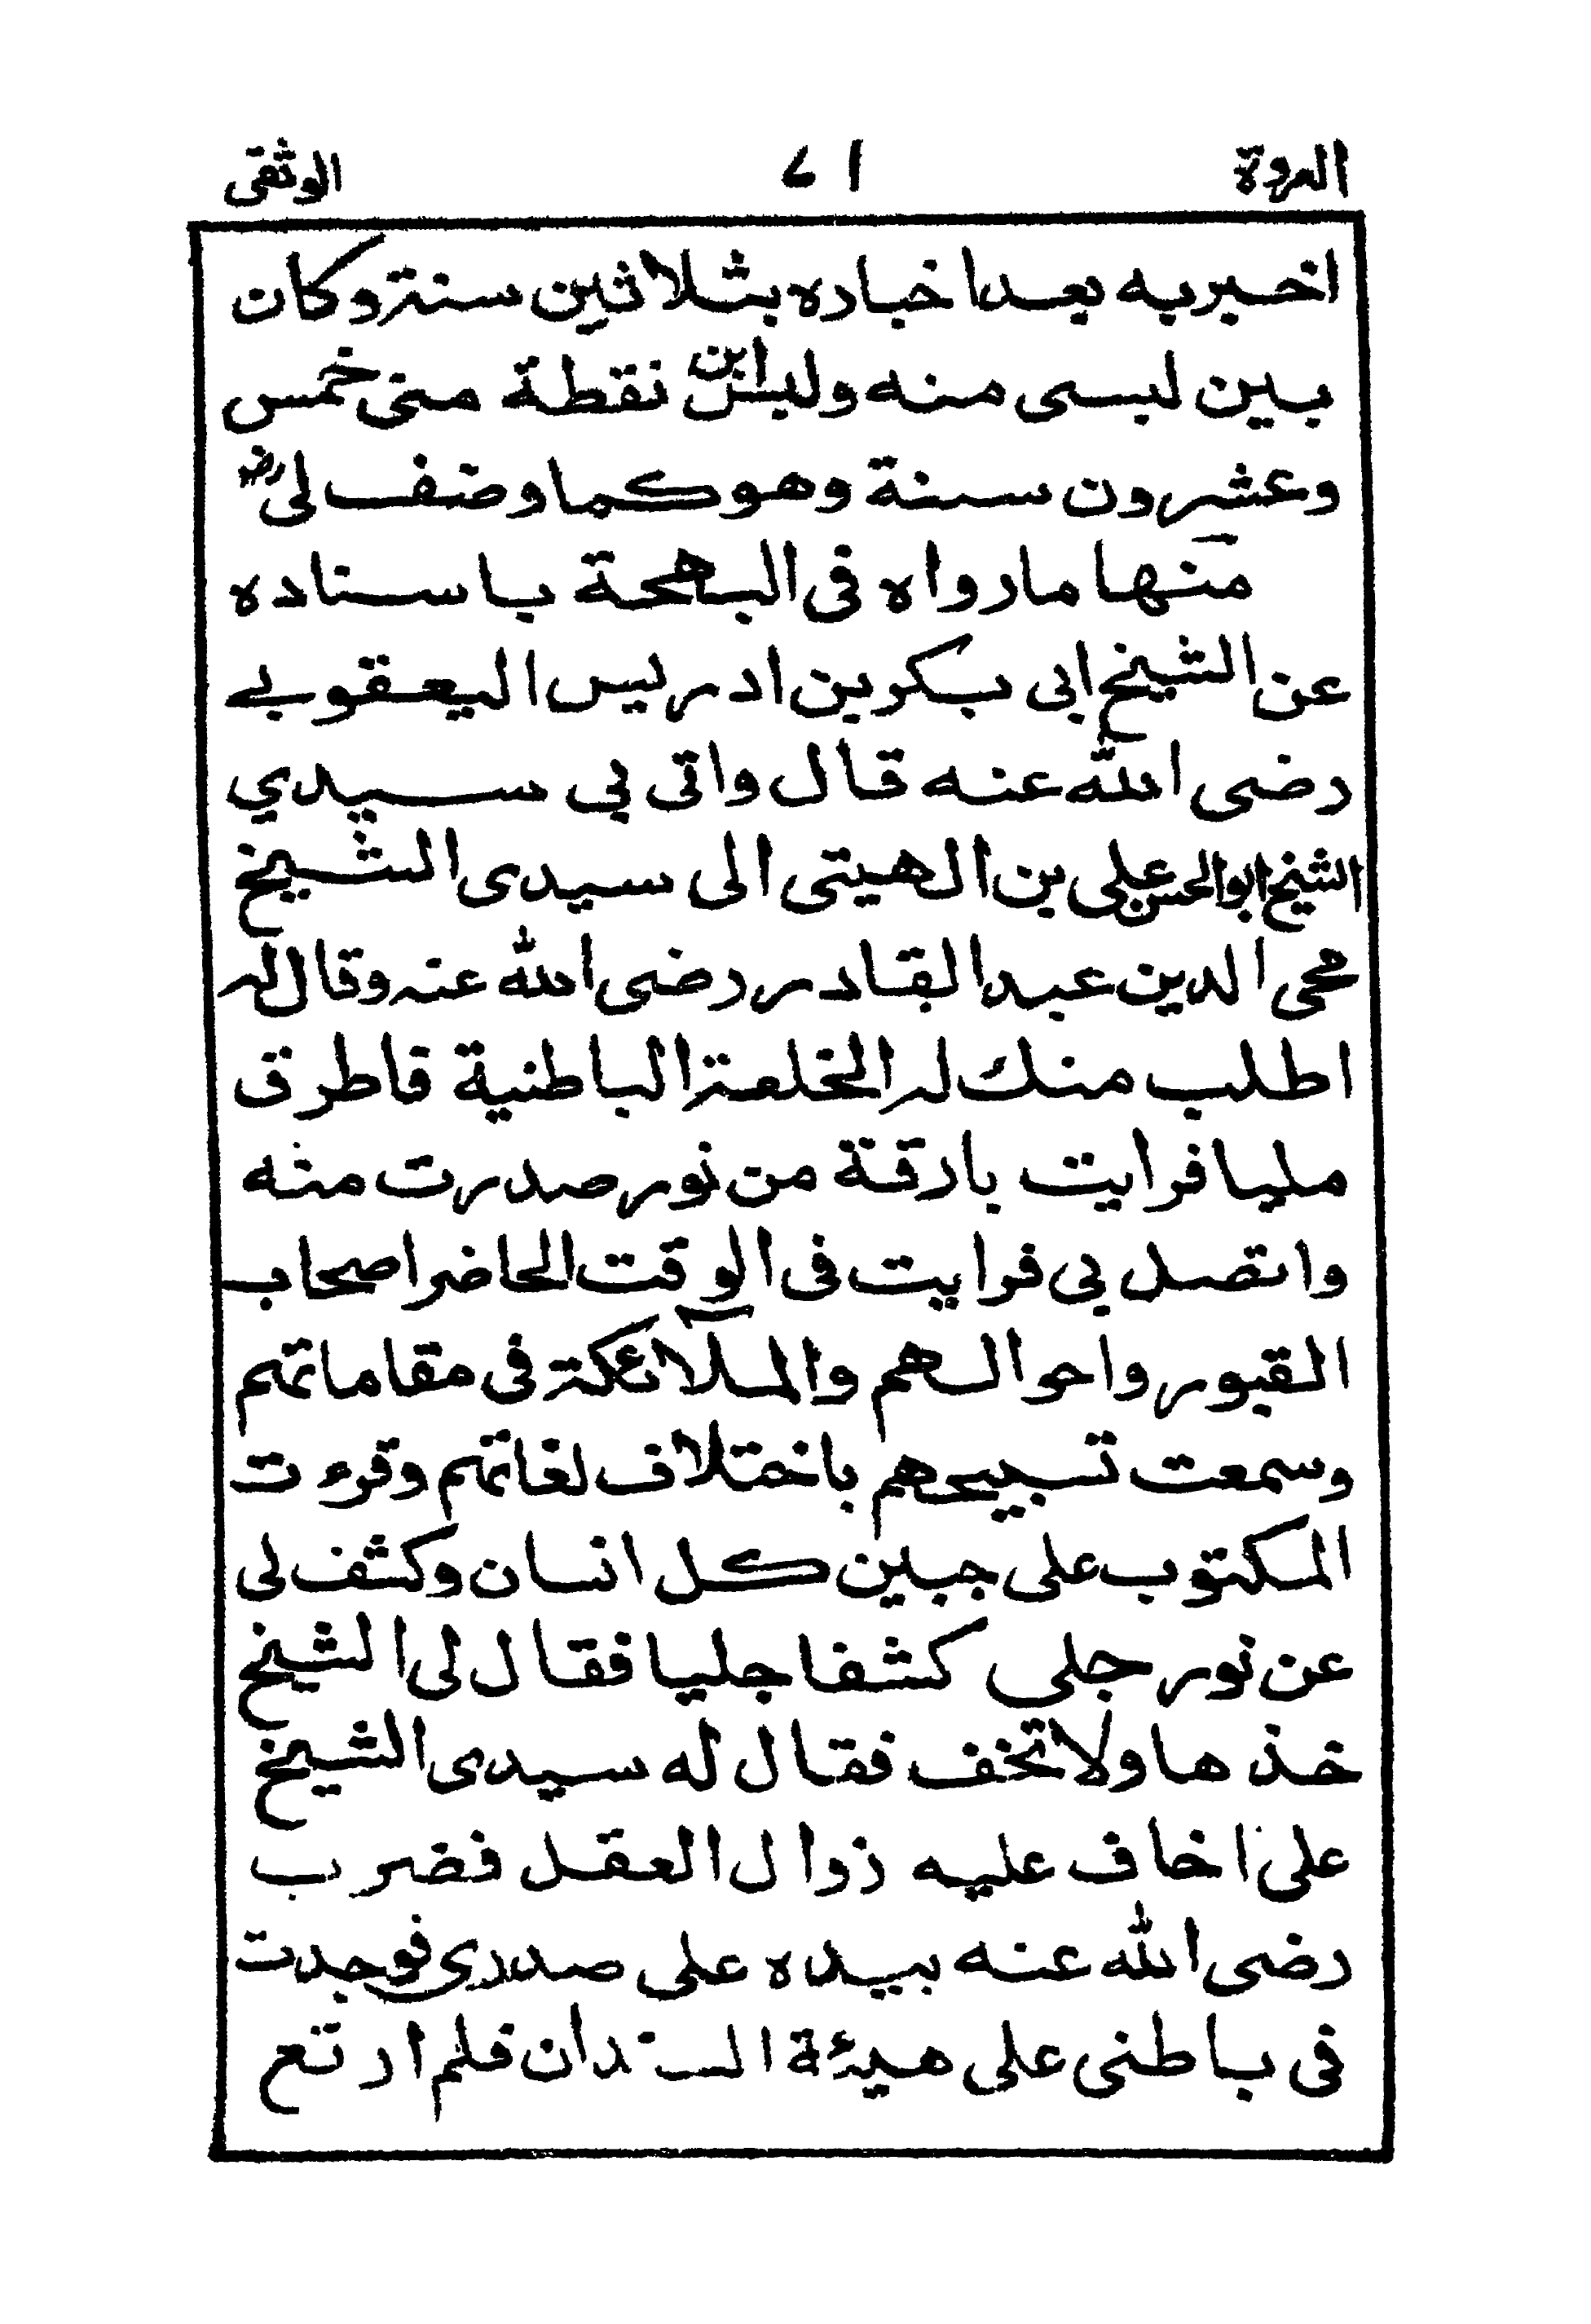 العروة ١٧ الوثقى
اخبر به بعد اخباره بثلاثين سنة وكان
بين لبسى منه ولبس ابن نقطة منى خمس
وعشرون سنة وهو كما وضف لى رضه
منها ما رواه فى البهجة باسناده
عن الشيخ ابى بكر بن ادريس اليعقوبے
رضى الله عنه قال واتى بى سيدي
الشيخ ابو الحسن على بن الهيتى الى سيدى الشيخ
محى الدين عبد القادر رضى الله عنه وقال له
اطلب منك له الخلعة الباطنية فاطرق
مليا فرايت بارقة من نور صدرت منه
واتصل بى فرايت فى الوقت الحاضر اصحاب
القبور واحوالهم والملآئكة فى مقاماتهم
وسمعت تسبيحهم باختلاف لغاتهم وقرءت
المكتوب على جبين كل انسان وكشف لى
عن نور جلى كشفا جليا فقال لى الشيخ
خذها ولا تخف فقال له سيدى الشيخ
على اخاف عليه زوال العقل فضرب
رضى الله عنه بيده على صدرى فوجدت
فى باطنى على هيئة السندان فلم ارتع